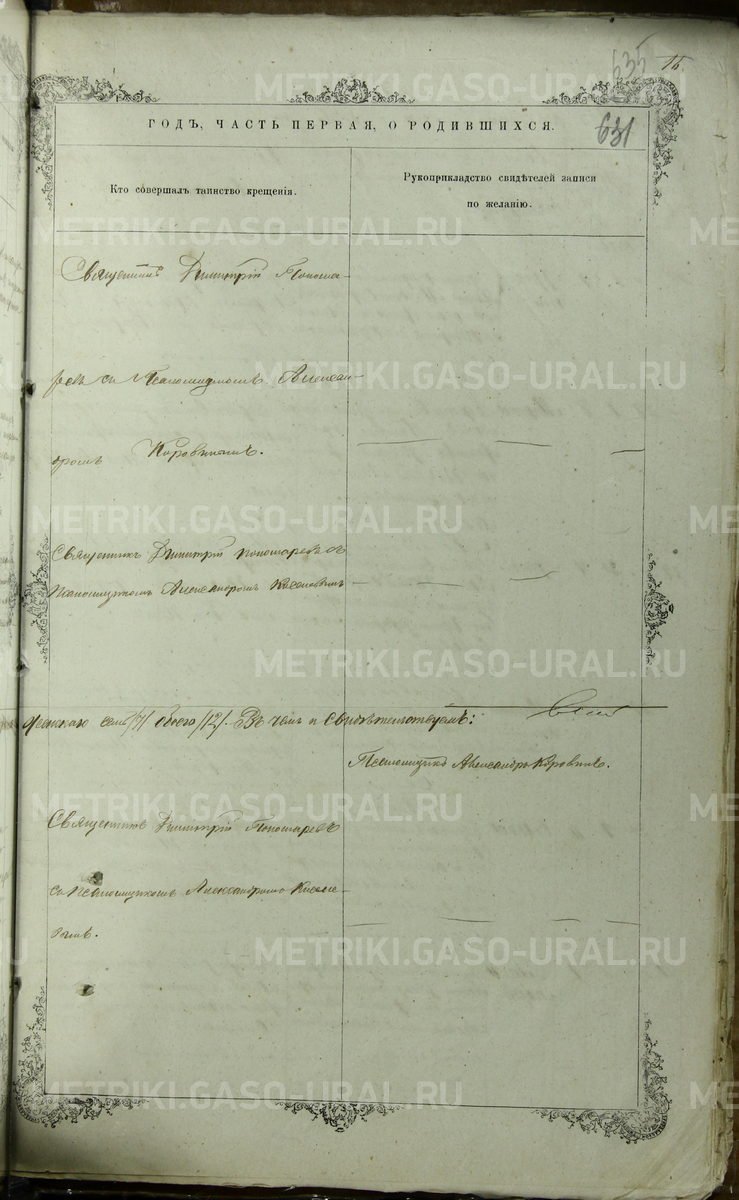 635 15.
ГОДЪ, ЧАСТЬ ПЕРВАЯ, О РОДИВШИХСЯ.
631
Кто совершалъ таинство крещенія.
Рукоприкладство свидѣтелей записи
по желанію.
Священникъ Димитрій Понома-
ревъ съ Псаломщикомъ Алексан-
дромъ Коровинымъ.
Священникъ Димитрій Пономаревъ съ
Псаломщикомъ Александромъ
женскаго семь /7/ обоего /12/. Въ чемъ и свидѣтельствуемъ:
Псаломщикъ Александръ Коровинъ.
Священникъ Димитрій Пономаревъ
съ Псаломщикомъ Александромъ
METRIKI.GASO-URAL.RU